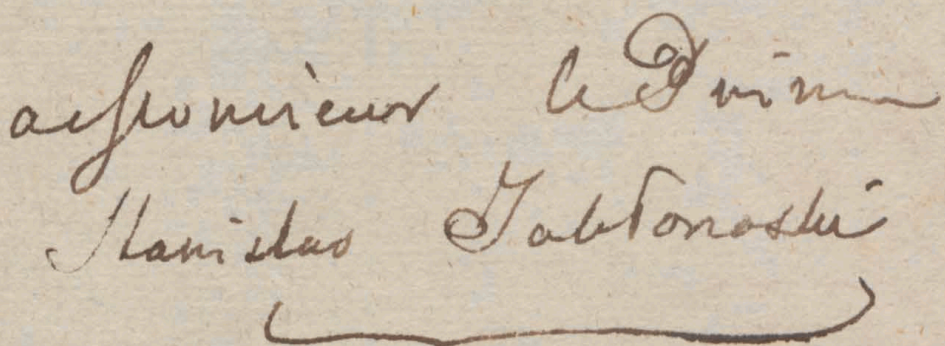 a Monsieur le Prince
Stanislas Jabłonoski